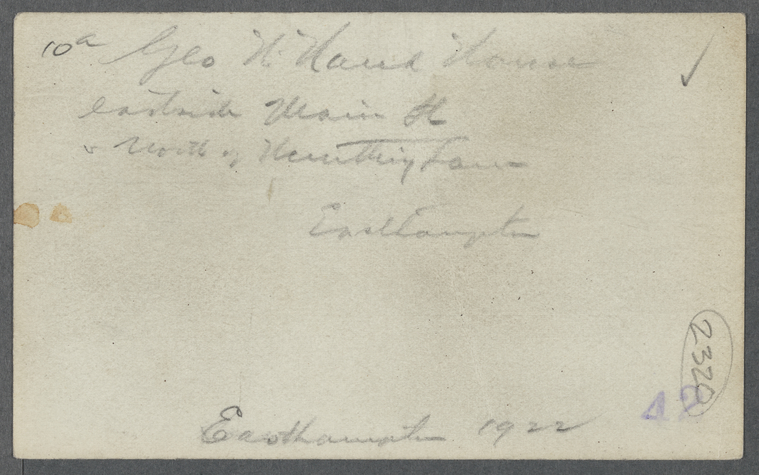 10a Geo H. Hand House
eastside Main St
& North of Huntting Lane
Easthampton
Easthampton 1922
2320
42